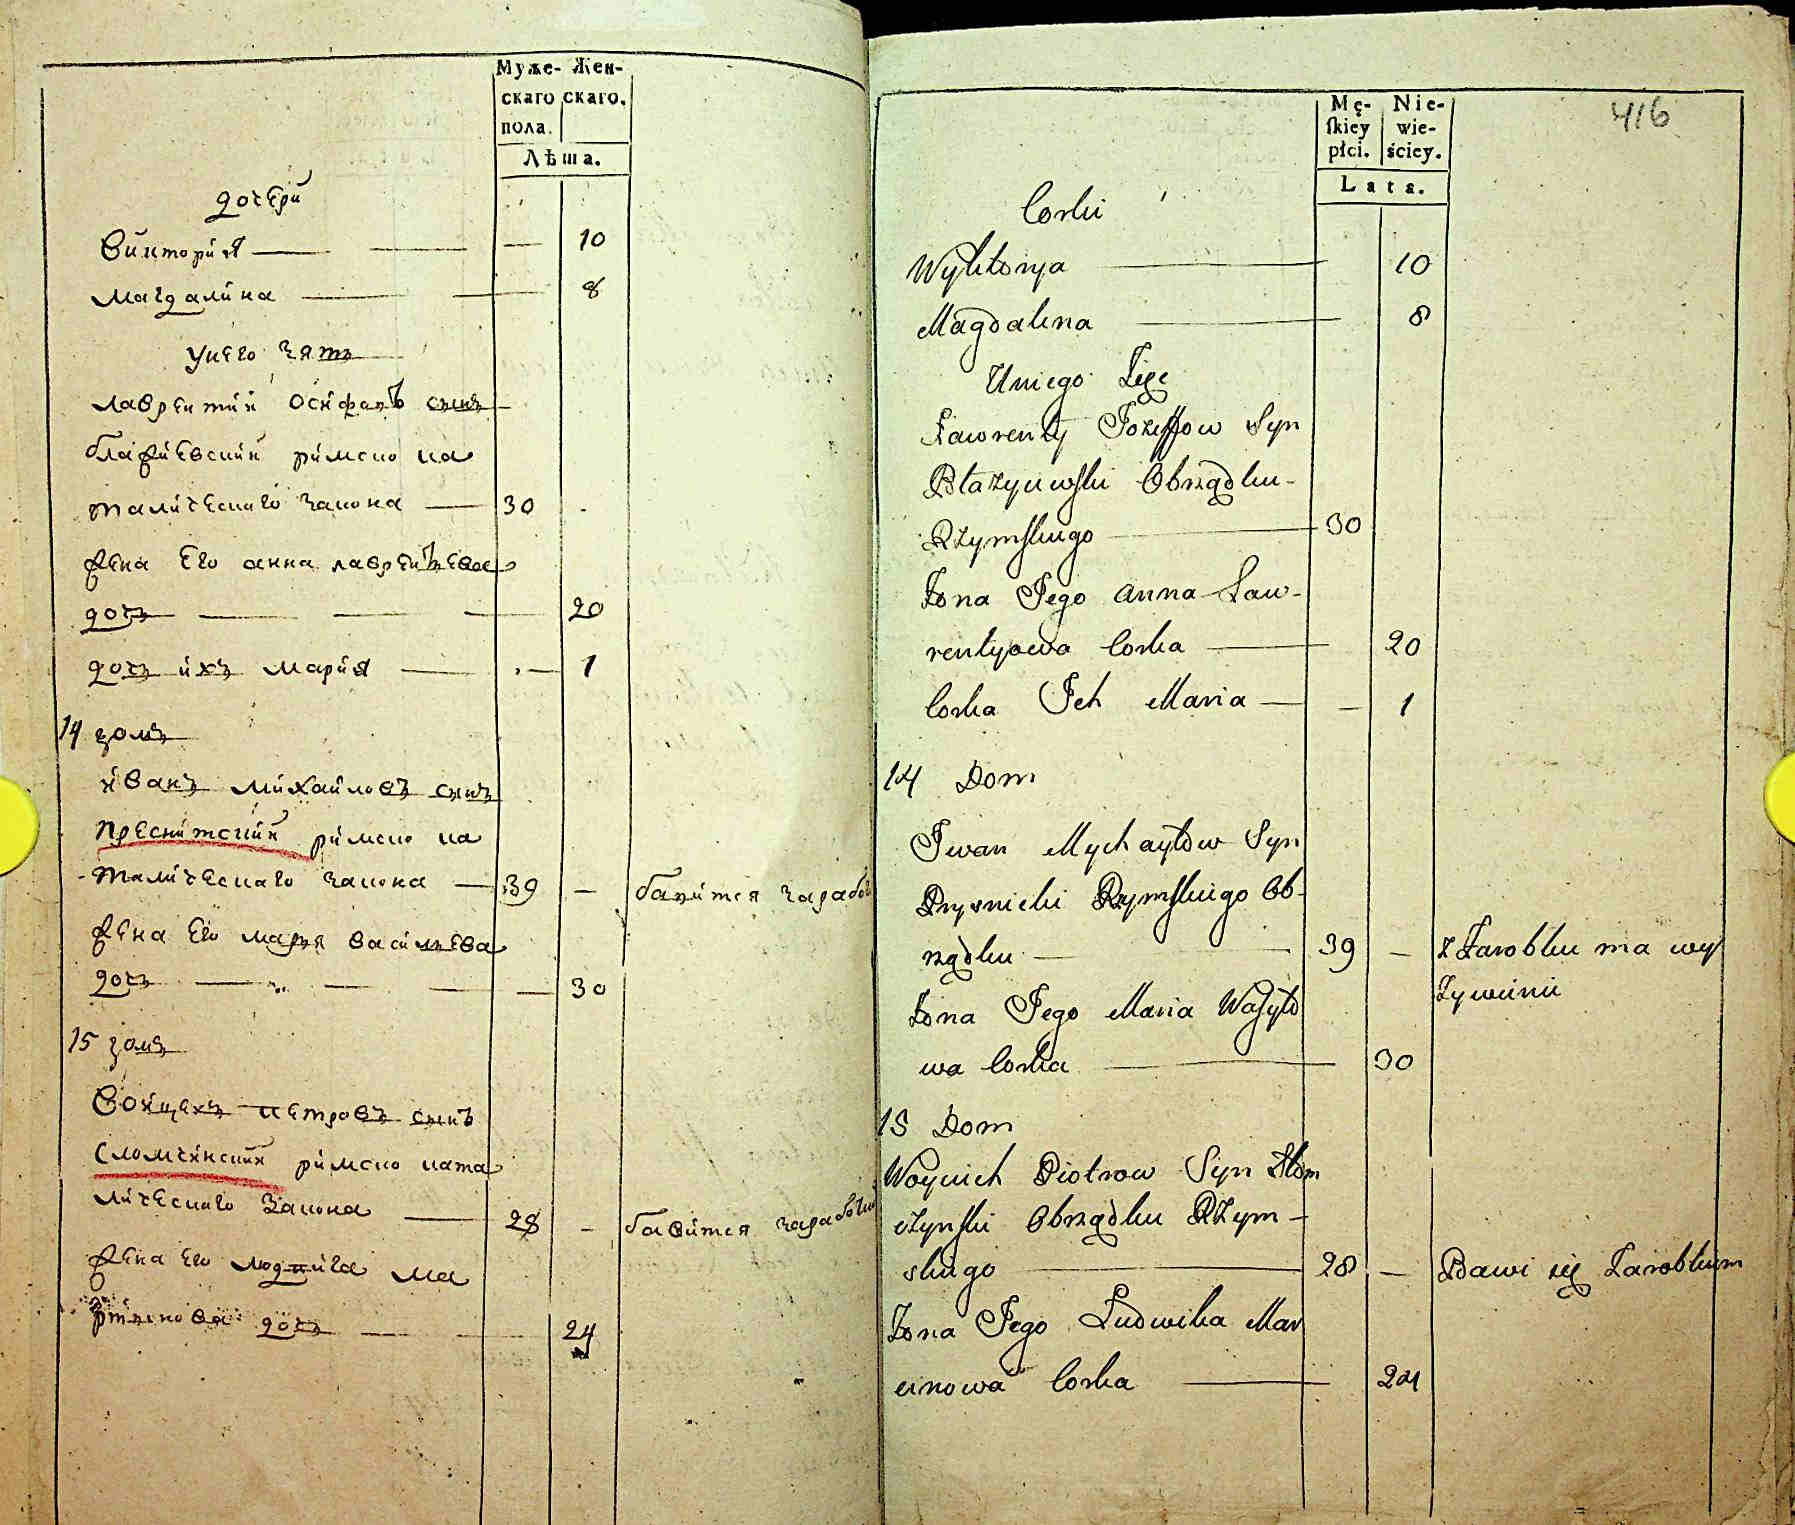 Муже- Жен-
скаго скаго.
пола.
Лѣта.
дочери
Виктория 10
Магдалина 8
у него зять
Лаврентий Осифовъ сынъ
Блажиевский римско ка
толическаго закона 30
жена его Анна Лаврентьева
дочь 20
дочь ихъ Мария 1
14 домъ
Иванъ Михайловъ сынъ
Преснитский римско ка
толическаго закона 39 бавится зарабо
жена его Марья Васильева
дочь 30
15 домъ
Войцехъ Петровъ сынъ
Сломчинский римско като
лическаго закона 28 бавится заработки
жена его Людвига Ма
дочь 24
416
Mę- Nie-
ſkiey wie-
płci. ściey.
Lata.
Corki
Wyktorya 10
Magdalena 8
U niego Zięć
Ławrenty Jozeffow Syn
Błażyiewſki Obrządku
Rzymſkiego 30
Żona Jego Anna Ław-
rentyowa Corka 20
Corka Ich Maria 1
14 Dom
Iwan Mychayłow Syn
Rzymſkiego Ob-
rządku 39 z Zarobku ma wy
żywienie
Żona Jego Maria Wasyło
wa Corka 30
15 Dom
Woyciech Piotrow Syn Słom
czynſki Obrządku Rzym-
skiego 28 Bawi się Zarobkiem
Żona Jego Ludwika Mar
cinowa Corka 24